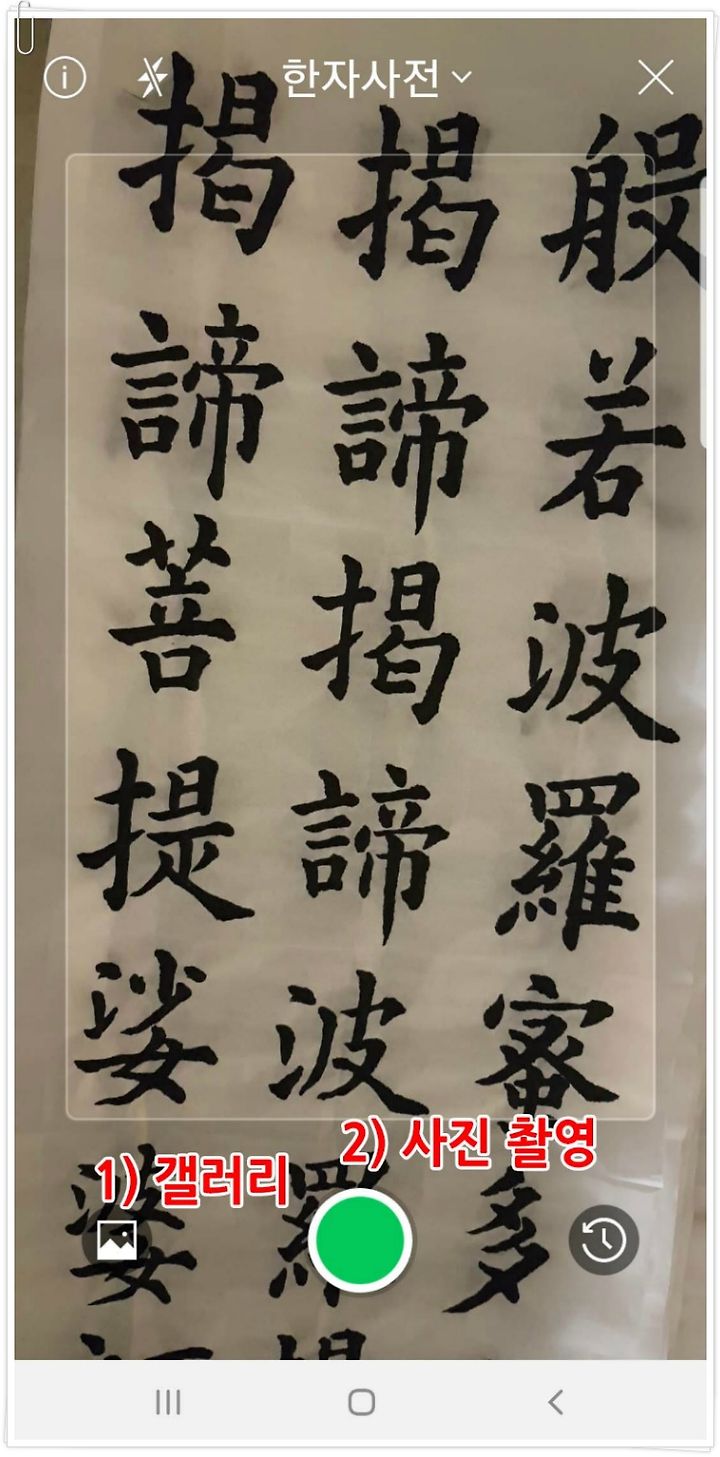 한자사전
般若波羅蜜多
揭諦揭諦波羅
揭諦菩提娑婆
1) 갤러리
2) 사진 촬영